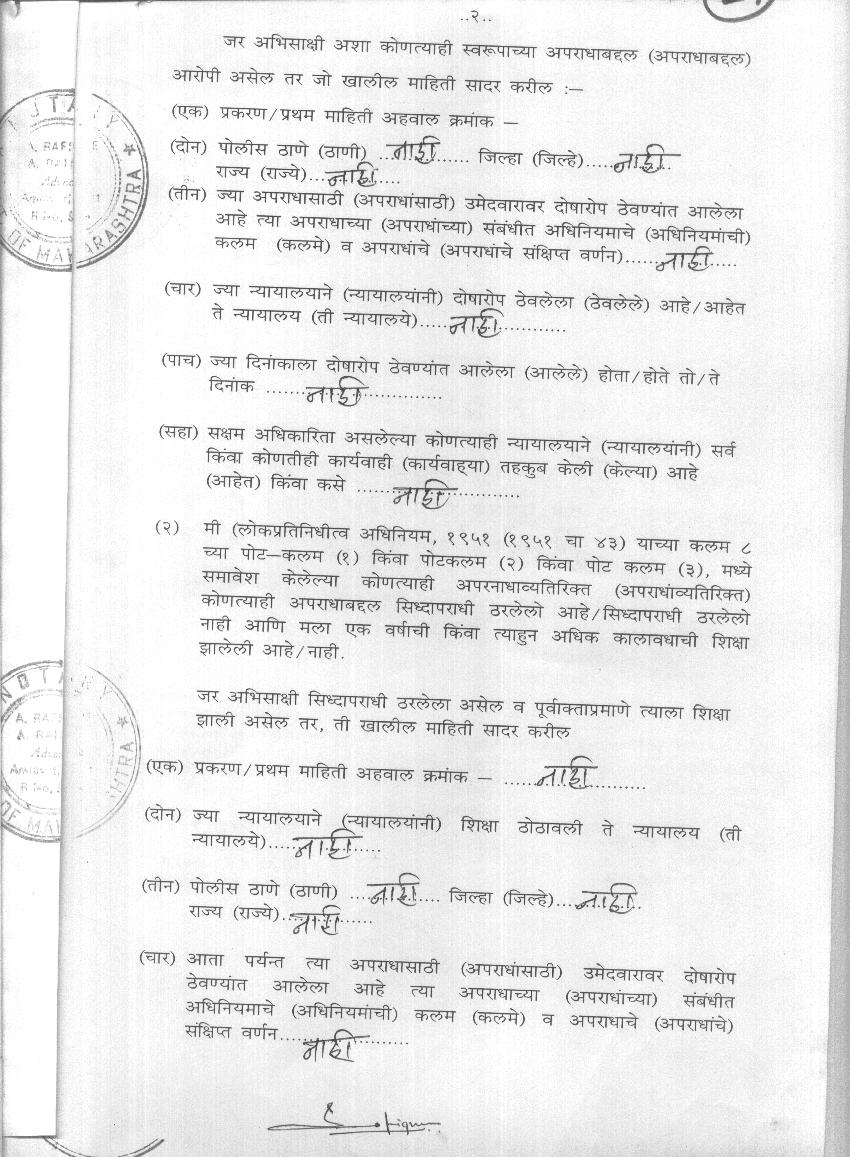 ..२..
जर अभिसाक्षी अशा कोणत्याही स्वरूपाच्या अपराधाबद्दल (अपराधाबद्दल)
आरोपी असेल तर जो खालील माहिती सादर करील :—
(एक) प्रकरण/प्रथम माहिती अहवाल क्रमांक —
(दोन) पोलीस ठाणे (ठाणी) ...नाही...... जिल्हा (जिल्हे).....नाही..
राज्य (राज्ये)...नाही....
(तीन) ज्या अपराधासाठी (अपराधांसाठी) उमेदवारावर दोषारोप ठेवण्यांत आलेला
आहे त्या अपराधाच्या (अपराधांच्या) संबंधीत अधिनियमाचे (अधिनियमांची)
कलम (कलमे) व अपराधांचे (अपराधांचे संक्षिप्त वर्णन)......नाही.....
(चार) ज्या न्यायालयाने (न्यायालयांनी) दोषारोप ठेवलेला (ठेवलेले) आहे/आहेत
ते न्यायालय (ती न्यायालये).....नाही.............
(पाच) ज्या दिनांकाला दोषारोप ठेवण्यांत आलेला (आलेले) होता/होते तो/ते
दिनांक .......नाही..............
(सहा) सक्षम अधिकारिता असलेल्या कोणत्याही न्यायालयाने (न्यायालयांनी) सर्व
किंवा कोणतीही कार्यवाही (कार्यवाह्या) तहकुब केली (केल्या) आहे
(आहेत) किंवा कसे .......नाही.............
(२) मी (लोकप्रतिनिधीत्व अधिनियम, १९५१ (१९५१ चा ४३) याच्या कलम ८
च्या पोट—कलम (१) किंवा पोटकलम (२) किंवा पोट कलम (३), मध्ये
समावेश केलेल्या कोणत्याही अपरनाधाव्यतिरिक्त (अपराधांव्यतिरिक्त)
कोणत्याही अपराधाबद्दल सिध्दापराधी ठरलेलो आहे/सिध्दापराधी ठरलेलो
नाही आणि मला एक वर्षाची किंवा त्याहुन अधिक कालावधाची शिक्षा
झालेली आहे/नाही.
जर अभिसाक्षी सिध्दापराधी ठरलेला असेल व पूर्वाक्ताप्रमाणे त्याला शिक्षा
झाली असेल तर, ती खालील माहिती सादर करील
(एक) प्रकरण/प्रथम माहिती अहवाल क्रमांक — ......नाही..........
(दोन) ज्या न्यायालयाने (न्यायालयांनी) शिक्षा ठोठावली ते न्यायालय (ती
न्यायालये).....नाही.....
(तीन) पोलीस ठाणे (ठाणी) ....नाही.... जिल्हा (जिल्हे)....नाही.
राज्य (राज्ये)..नाही......
(चार) आता पर्यन्त त्या अपराधासाठी (अपराधांसाठी) उमेदवारावर दोषारोप
ठेवण्यांत आलेला आहे त्या अपराधाच्या (अपराधाच्या) संबंधीत
अधिनियमाचे (अधिनियमांची) कलम (कलमे) व अपराधाचे (अपराधांचे)
संक्षिप्त वर्णन.....नाही.........
NOTARY
OF MAHARASHTRA
NOTARY